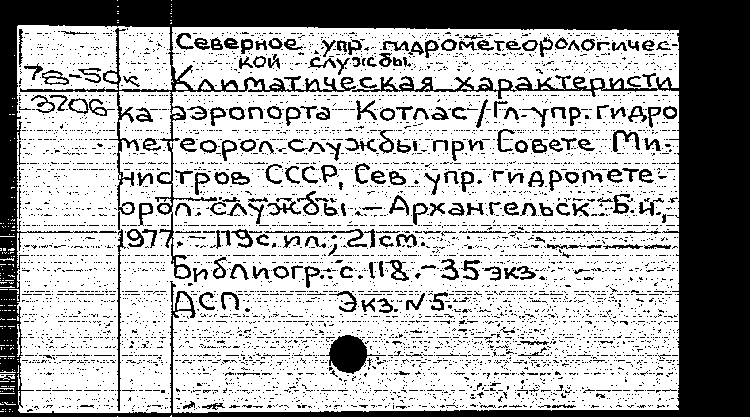 Северное упр. гидрометеорологичес-
кой службы.
78-50к Климатическая характеристи
3206 ка аэропорта Котлас/Гл. упр. гидро
метеорол. службы при Совете Ми-
нистров СССР, Сев. упр. гидромете-
орол. службы. — Архангельск: Б.и.,
1977. — 119с. ил.; 21см.
Библиогр.: с. 118. — 35 экз.
ДСП. Экз. N 5.